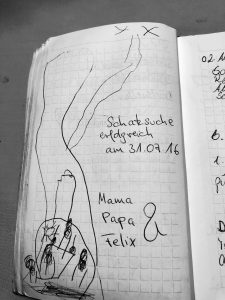 x x
Schatzsuche
erfolgreich
am 31.07.16
Mama
Papa &
Felix
02
6.
1.